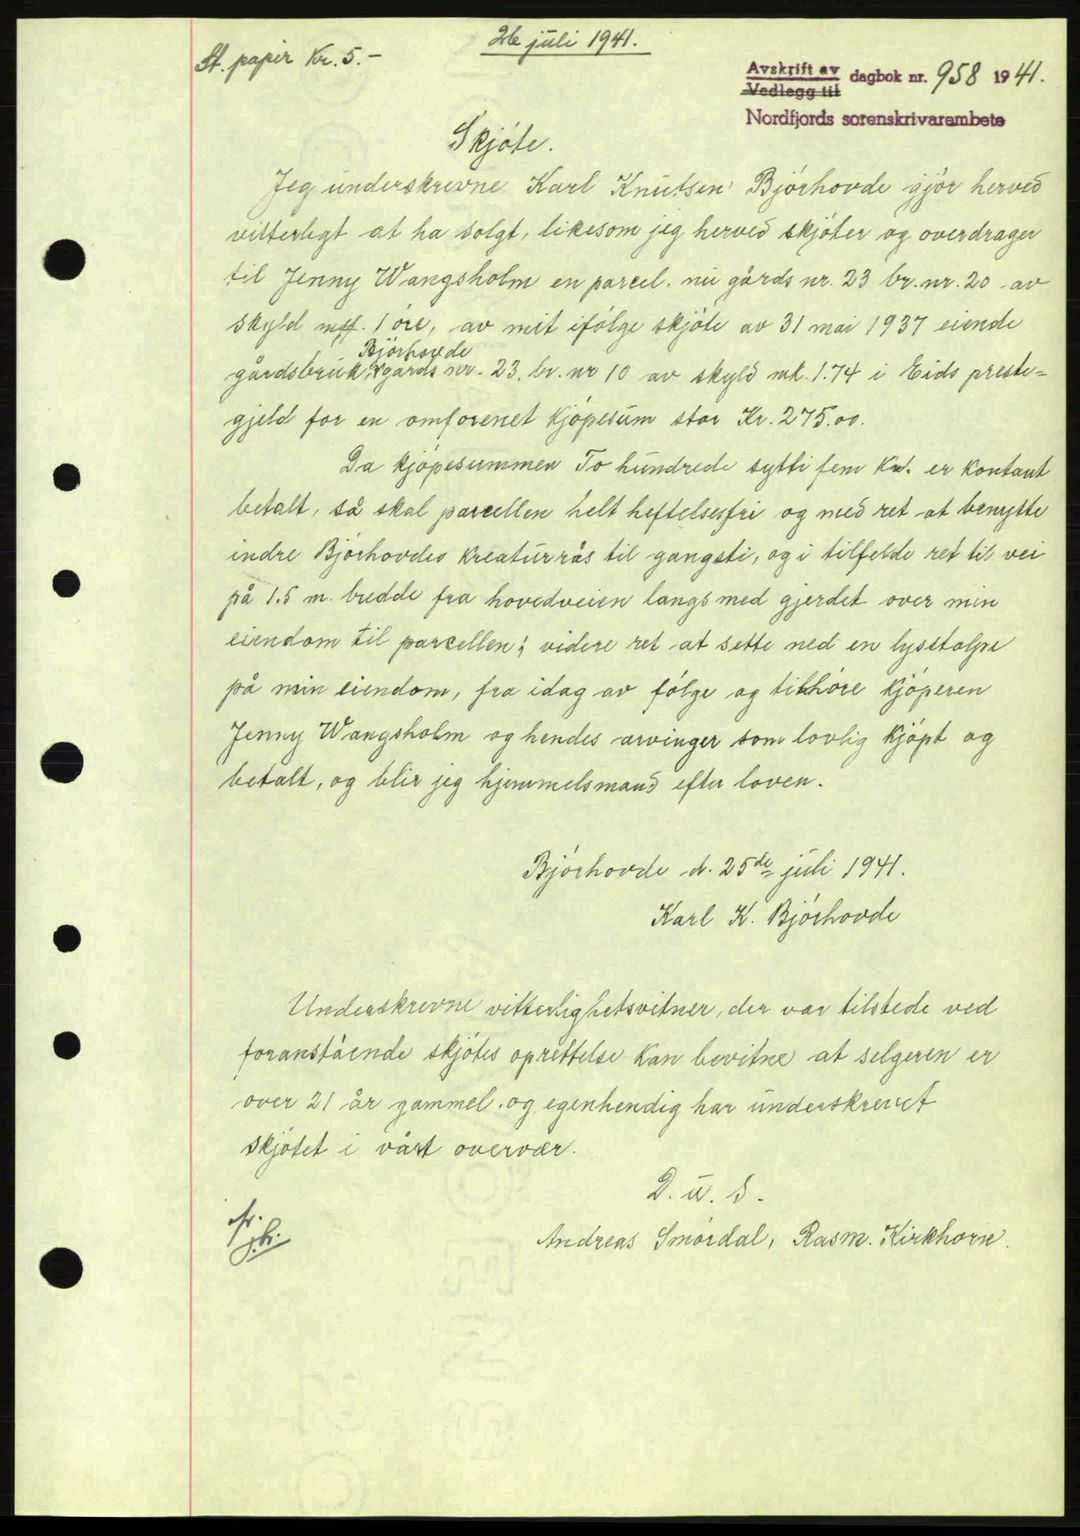 26 juli 1941.
St. papir Kr. 5.-
Avskrift av
Vedlegg til
dagbok nr. 958 1941.
Nordfjords sorenskrivarembete
Skjöte.
Jeg underskrevne Karl Knutsen Bjórhovde gjör herved
vitterligt at ha solgt, likesom jeg herved skjöter og overdrager
til Jenny Wangsholm en parcel. nu gårds nr. 23 br. nr. 20 av
skyld 1 öre, av mit ifölge skjöte av 31 mai 1937 eiende
Bjórhovde
gårdsbruk, gårds nr. 23, br. nr 10 av skyld mk. 1.74 i Eids preste=
gjeld for en omforenet Kjöpesum stor Kr. 275.00.
Da kjöpesummen To hundrede sytti fem Kr. er Kontant
betalt, så skal parcellen helt heftelsesfri og med ret at benytte
indre Bjórhovdes Kreaturrås til gangsti, og i tilfelde ret til vei
på 1.5 m. bredde fra hovedveien langs med gjerdet over min
eiendom til parcellen; videre ret at sette ned en lysstolpe
på min eiendom, fra idag av fölge og tilhöre Kjöperen
Jenny Wangsholm og hendes arvinger som lovlig Kjöpt og
betalt, og blir jeg hjemmelsmand efter loven.
Bjórhovde d. 25de juli 1941.
Karl K. Bjórhovde
Underskrevne vitterlighetsvitner, der var tilstede ved
foranstående skjötes oprettelse Kan bevitne at selgeren er
over 21 år gammel og egenhendig har underskrevet
skjötet i vårt overvær.
D. u. s.
Andreas Smórdal, Rasm. Kirkhorn.